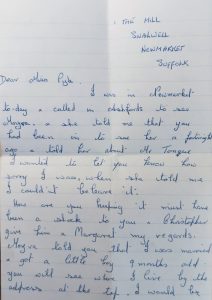 THE MILL
SNAILWELL
NEWMARKET
SUFFOLK
Dear Miss Pyke.
I was in Newmarket
to-day & called in chalkpits to see
Moyra. & she told me that you
had been in to see her a fortnight
ago & told her about Mr Tongue
I wanted to let you know how
sorry I was, when she told me
I could'nt beleave it.
How are you keeping it must have
been a shock to you & Christopher
give him & Margaret my regards.
Moyra told you that I was married
& got a little boy 9 months old
you will see where I live by the
address at the top. I would be